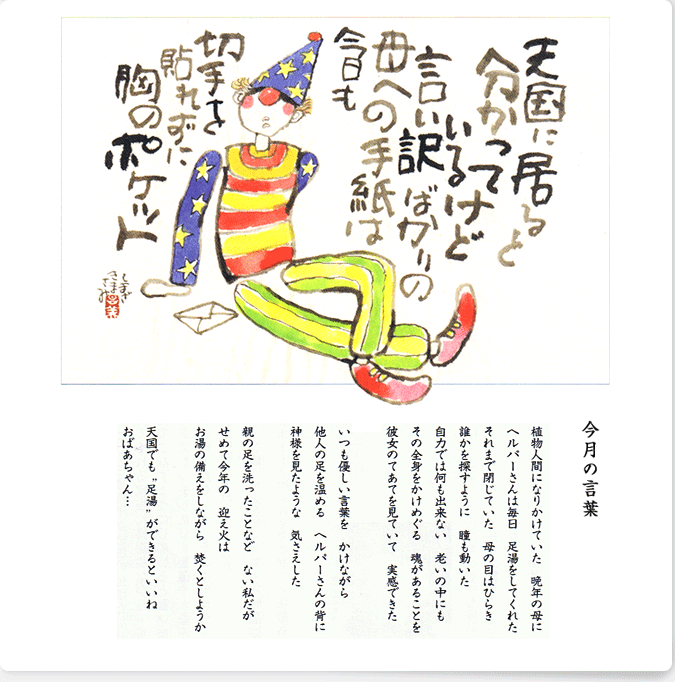 天国に居ると
分かって
いるけど
言い訳ばかりの
母への手紙は
今日も
切手を
貼れずに
胸のポケット
今月の言葉
植物人間になりかけていた　晩年の母に
ヘルパーさんは毎日　足湯をしてくれた
それまで閉じていた　母の目はひらき
誰かを探すように　瞳も動いた
自力では何も出来ない　老いの中にも
その全身をかけめぐる　魂があることを
彼女のてあてを見ていて　実感できた
いつも優しい言葉を　かけながら
他人の足を温める　ヘルパーさんの背に
神様を見たような　気さえした
親の足を洗ったことなど　ない私だが
せめて今年の　迎え火は
お湯の備えをしながら　焚くとしようか
天国でも〝足湯〟ができるといいね
おばあちゃん…